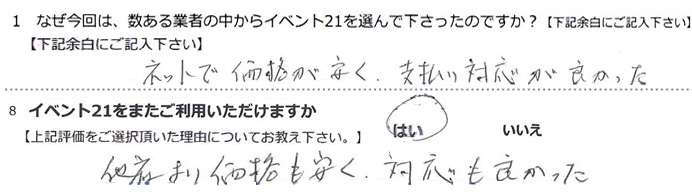 1 なぜ今回は、数ある業者の中からイベント21を選んで下さったのですか？【下記余白にご記入下さい】
【下記余白にご記入下さい】
ネットで価格が安く、支払い対応が良かった
8 イベント21をまたご利用いただけますか
【上記評価をご選択頂いた理由についてお教え下さい。】 はい いいえ
他店より価格も安く、対応も良かった